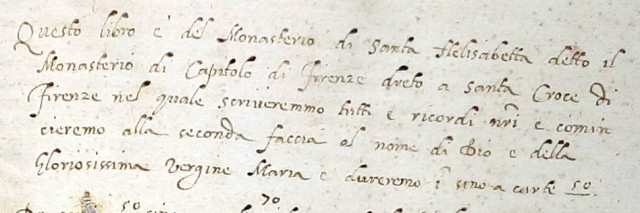 Questo libro è del Monasterio di Santa Helisabetta detto il
Monasterio di Capitolo di Firenze dreto a Santa Croce di
Firenze nel quale scriveremmo tutti e ricordi nr̃i e comin
cieremo alla seconda faccia al nome di Dio e della
Gloriosissima Vergine Maria e dureremo ĩ sino a carte 50.
50 70